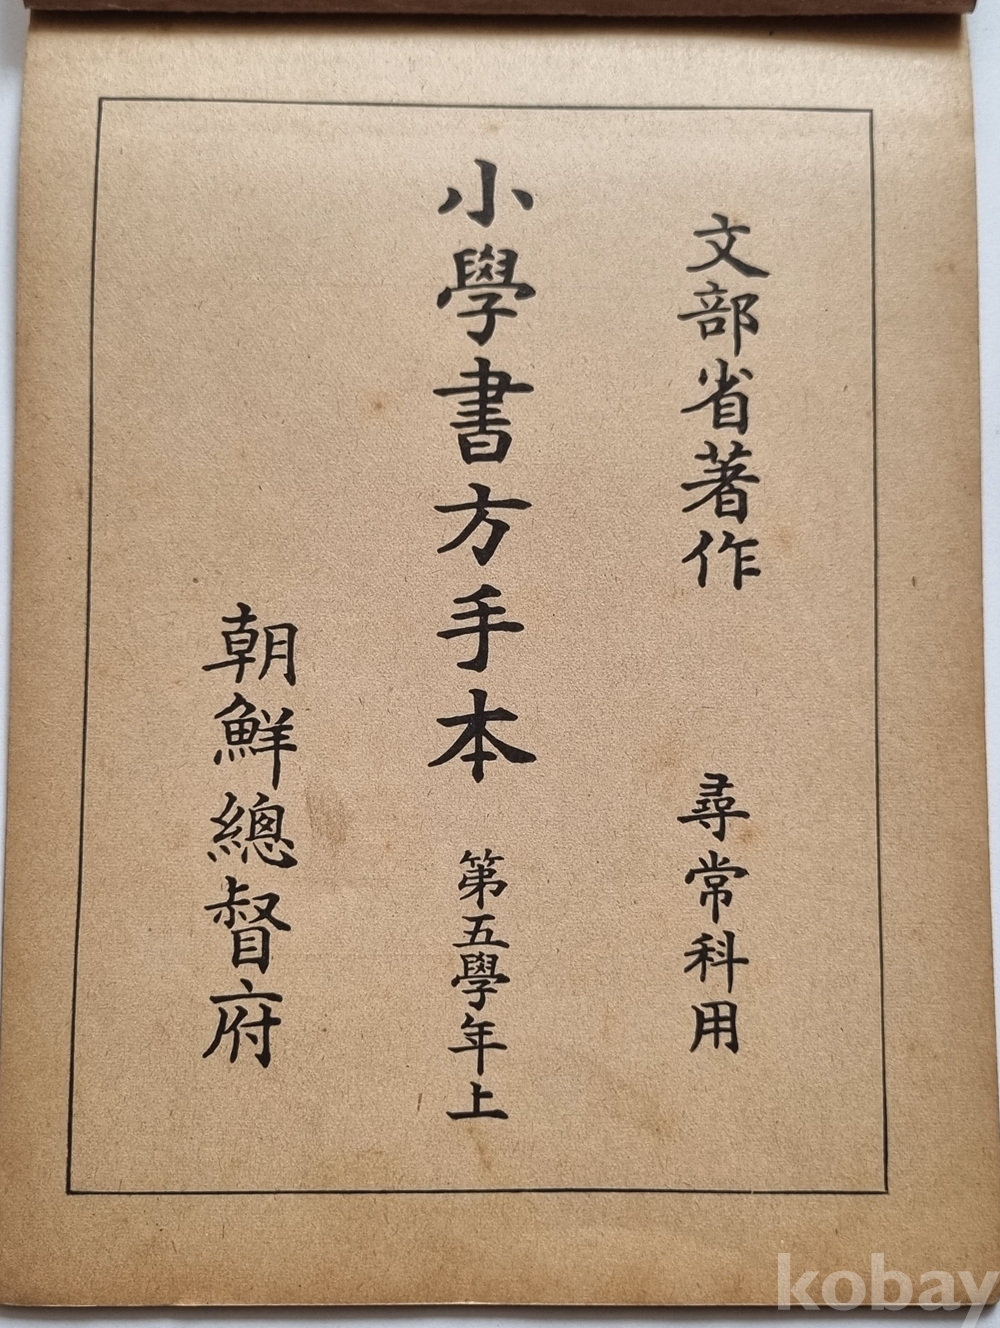 文部省著作 尋常科用
小學書方手本 第五學年上
朝鮮總督府
kobay